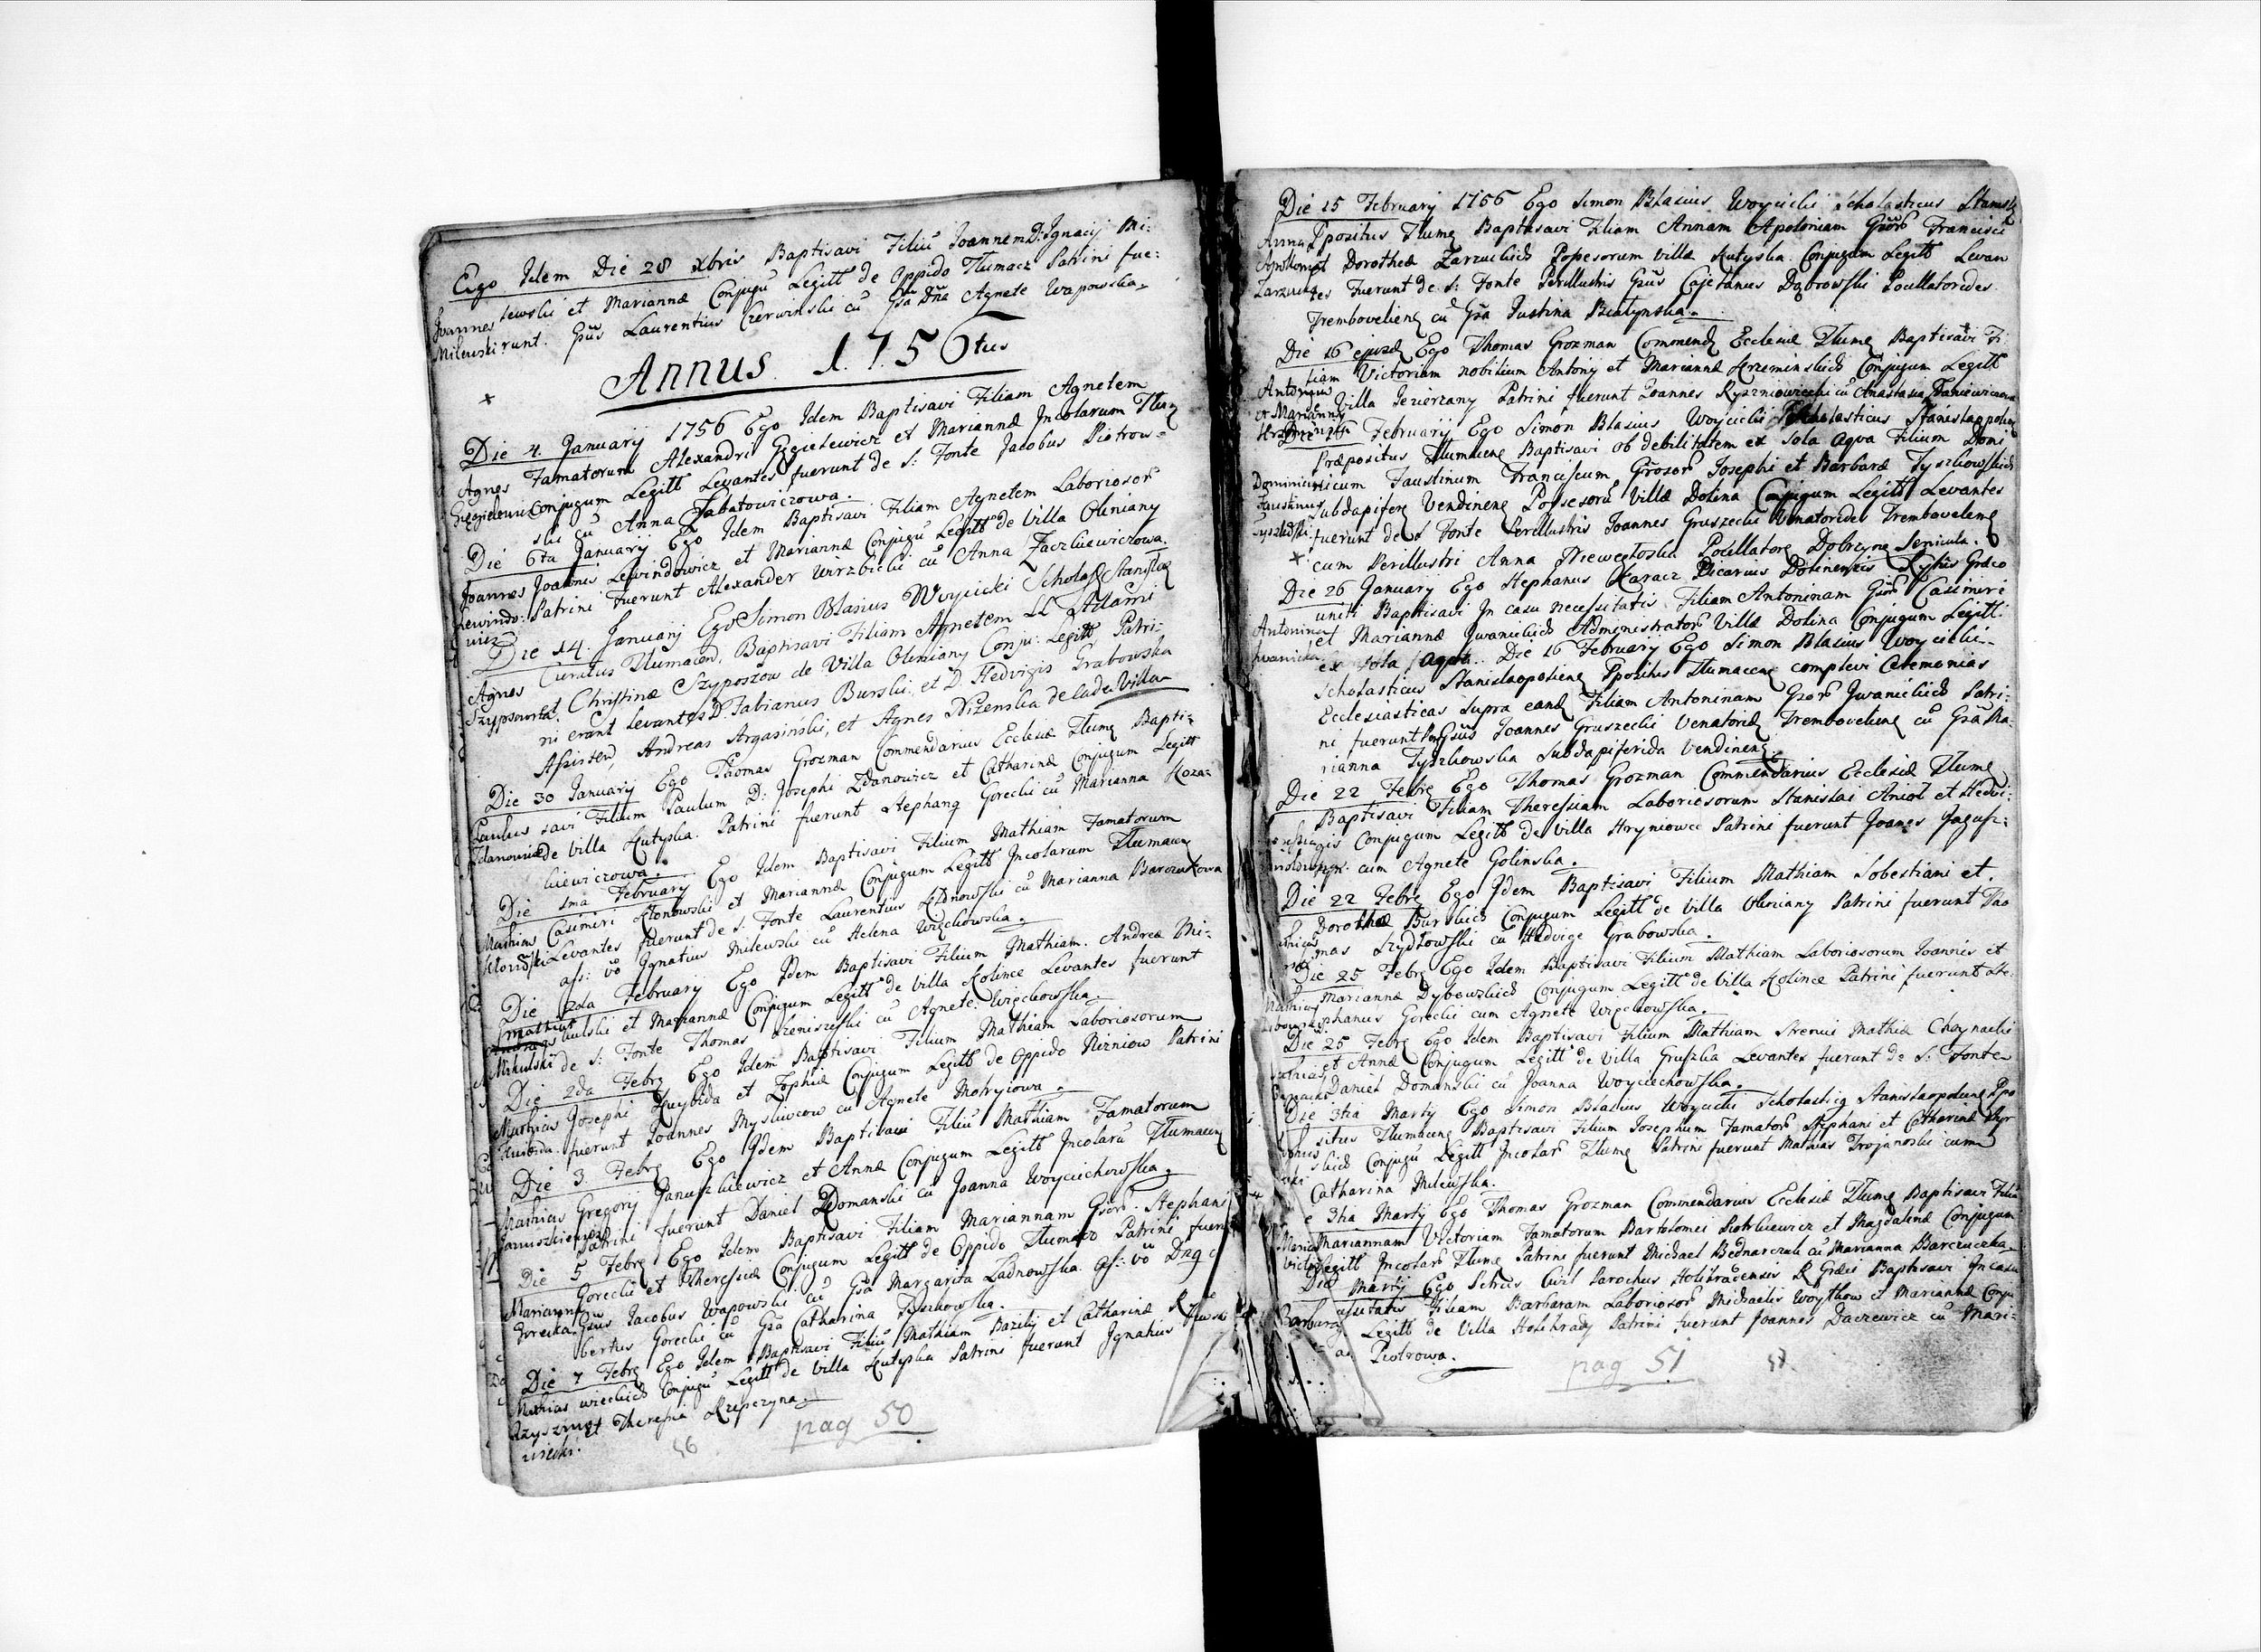 Ego Idem Die 28 xbris Baptisavi Filiũ Joannem D: Ignacij Mi:
Joannes lewski et Mariannæ Conjugũ Legitt de Oppido Tłumacz Patrini fue:
Milewski runt. Gsũs Laurentius Czerwinski cũ Gsã Dña Agnete Wapowska
Annus 1756tus
Die 4. Januarij 1756 Ego Idem Baptisavi Filiam Agnetem
Agnes Famatorum Alexandri Gęgielewicz et Mariannæ Incolarum Tłum
Conjugum Legitt Levantes fuerunt de S: Fonte Jacobus Piotrow=
ski cũ Anna Sabatowiczowa.
Die 6ta Januarij Ego Idem Baptisavi Filiam Agnetem Laboriosor
Joannes Joannis Lewindowicz et Mariannæ Conjugũ Legitt de Villa Oleniany
Lewindo: Patrini fuerunt Alexander Wirzbicki cũ Anna Zaczkiewiczowa.
wicz
Die 14. Januarij Ego Simon Blasius Woycicki Scholas Stanisł
Agnes Curatus Tłumacen, Baptisavi Filiam Agnetem LL Adami
et Christinæ Szyposzow de Villa Oleniany Conju: Legitt, Patri:
ni erant Levantes D. Fabianus Burski, et D Hedvigis Grabowska
Assisten, Andreas Argasiński, et Agnes Nizenska de eadem Villa
Die 30 Januarij Ego Thomas Grozman Commendarius Ecclesiæ Tłume Bapti=
Paulus savi Filium Paulum D: Josephi Zdanowicz et Catharinæ Conjugum Legitt
Zdanowicz de Villa Kutyska. Patrini fuerunt Stephang Gorecki cũ Marianna Koza=
kiewiczowa.
Die 1ma February Ego Idem Baptisavi Filium Mathiam Famatorum
Mathias Casimiri Kłonowski et Mariannæ Conjugum Legitt Incolarum Tłumacen
Levantes fuerunt de S. Fonte Laurentius Kłonowski cũ Marianna Barczukowa
ass: vô Ignatius Milewski cũ Helena Więckowska.
Die 2da February Ego Idem Baptisavi Filium Mathiam. Andreæ Mi=
Mathias kulski et Mariannæ Conjugum Legitt de Villa Kolince Levantes fuerunt
Mikulski de S: Fonte Thomas cũ Agnete Więckowska.
Die 2da Febrz Ego Idem Baptisavi Filium Mathiam Laboriosorum
Mathias Josephi Huybida et Zophiæ Conjugum Legitt de Oppido Nizniow Patrini
fuerunt Joannes Mysliwcow cũ Agnete Mohryiowa.
Die 3. Febrz Ego Idem Baptisavi Filiũ Mathiam Famatorum
Mathias Gregorij Januszkiewicz et Annæ Conjugum Legitt Incolarũ Tłumacen
Januszkiewicz Patrini fuerunt Daniel Domanski cũ Joanna Woyciechowska.
Die 5 Febrz Ego Idem Baptisavi Filiam Mariannam Gsor. Stephani
Gorecki et Theressiæ Conjugum Legitt de Oppido Tłumacz Patrini fuerũ
Marianna Gsũs Jacobus Wapowski cũ Gsã Margarita Ladnowska. Ass: vô
Gorecka bertus Gorecki cũ Gsã Catharina Tyszkowska.
Die 7 Febrz Ego Idem Baptisavi Filiũ Mathiam Bazilij et Catharinæ
Mathias wieckich Conjugũ Legitt de Villa Kutyska Patrini fuerunt Ignatius
et Theresia Krzepczyna
wiecki.
46
pag 50
Die 15 February 1756 Ego Simon Blasius Woycicki Scholasticus Stanisł
Anna Ppositus Tłume Baptisavi Filiam Annam Apoloniam Gsor Francisci
et Dorotheæ Zarzuckich Possesorum villæ Kutyska Conjugum Legitt Levan
tes Fuerunt de S: Fonte Perillustris Gsũs Cajetanus Dąbrowski Pocillatorides
Trembovelien cũ Gsã Justina Białynska.
Die 16 ejusd Ego Thomas Grozman Comenend Ecclesiæ Tłume Baptisavi Fi:
liam Victoriam nobilium Antonij et Mariannæ Krzeminskich Conjugum Legitt
Villa Jezierzany Patrini fuerunt Joannes Ryszniowiecki cũ Anastasia Daniewiczowa
Die 16 February Ego Simon Blasius Woycicki Scholasticus Stanislaopolien
Præpositus Tłumacen Baptisavi ob debilitatem ex sola aqva Filium Domi
nicum Faustinum Franciscum Gsosor Josephi et Barbaræ Tyszkowskich
Subdapifere Vendinen Possesorũ Villæ Dolina Conjugum Legitt Levantes
fuerunt de S Fonte Perillustris Joannes Gruszecki Venatorides Trembovelen
cum Perillustri Anna Niewęgłoska Pocillatore Dobrzyne Senicula.
Die 26 January Ego Stephanus Karacz Vicarius Dolinensis Ryttus Græco
uniti Baptisavi In casu necessitatis Filiam Antoninam Gsor Casimiri
Antonina et Mariannæ Jwanickich Administrator Villæ Dolina Conjugum Legitt.
Jwanicka ex sola Aqva. Die 16 February Ego Simon Blasius Woycicki
Scholasticus Stanislaopolien Ppositus Tłumacen complevi Ceremonias
Ecclesiasticas supra eand Filiam Antoninam Gsor Jwanickich Patri:
ni fuerunt Gsũs Joannes Gruszecki Venatorid Trembovelien cũ Gsã Ma:
rianna Tyszkowska Subdapiferida Vendinen
Die 22 Febrz Ego Thomas Grozman Commendarius Ecclesiæ Tłume
Baptisavi Filiam Theressiam Laboriosorum Stanislai Anioł et Hedvi:
gis Conjugum Legitt de Villa Hryniowce Patrini fuerunt Joanes
cum Agnete Golinska.
Die 22 Febrz Ego Idem Baptisavi Filium Mathiam Sobestiani et
Dorotheæ Burskich Conjugum Legitt de Villa Oleniany Patrini fuerunt Tho
mas Szydłowski cũ Hedvige Grabowska.
Die 25 Febrz Ego Idem Baptisavi Filium Mathiam Laboriosorum Joannis et
Mariannæ Dybowskich Conjugum Legitt de Villa Kolince Patrini fuerunt Ste:
phanus Gorecki cum Agnete Więckowska.
Die 25 Febrz Ego Idem Baptisavi Filium Mathiam Strenui Mathiæ Choynacki
et Annæ Conjugum Legitt de Villa Gruszka Levantes fuerunt de S: Fonte
Daniel Domanski cũ Joanna Woyciechowska.
Die 3tia Martij Ego Simon Blasius Woycicki Scholasticg Stanislaopolieng Ppo
situs Tłumaceng Baptisavi Filium Josephum Famator Stephani et Catharinæ
skich Conjugũ Legitt Incolar Tłume Patrini fuerunt Mathias Trojanoski cum
Catharina Milewska.
e 3tia Martij Ego Thomas Grozman Commendarius Ecclesiæ Tłume Baptisavi Filiã
Mariannam Victoriam Famatorum Bartolomei Piotrkiewicz et Magdalinæ Conjugum
Legitt Incolar Tłume Patrini fuerunt Michael Bednarczuk cũ Marianna Barczuczka
Die Martij Ego Petrus Cwil Parochus Holihradensis R Græci Baptisavi In casu
cessitatis Filiam Barbaram Laboriosor Michaelis Woytkow et Mariannæ Conju
Barbara Legitt de Villa Holihrady Patrini fuerunt Joannes Daczewicz cũ Mari=
an Piotrowa.
pag 51
47.